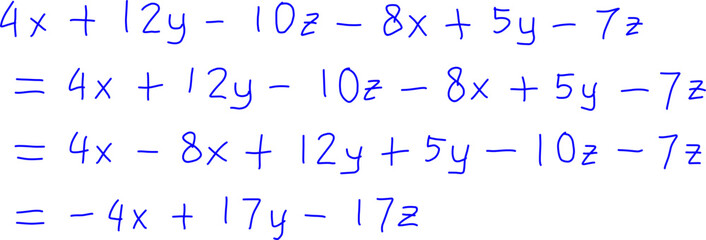 4x + 12y - 10z - 8x + 5y - 7z
= 4x + 12y - 10z - 8x + 5y - 7z
= 4x - 8x + 12y + 5y - 10z - 7z
= -4x + 17y - 17z